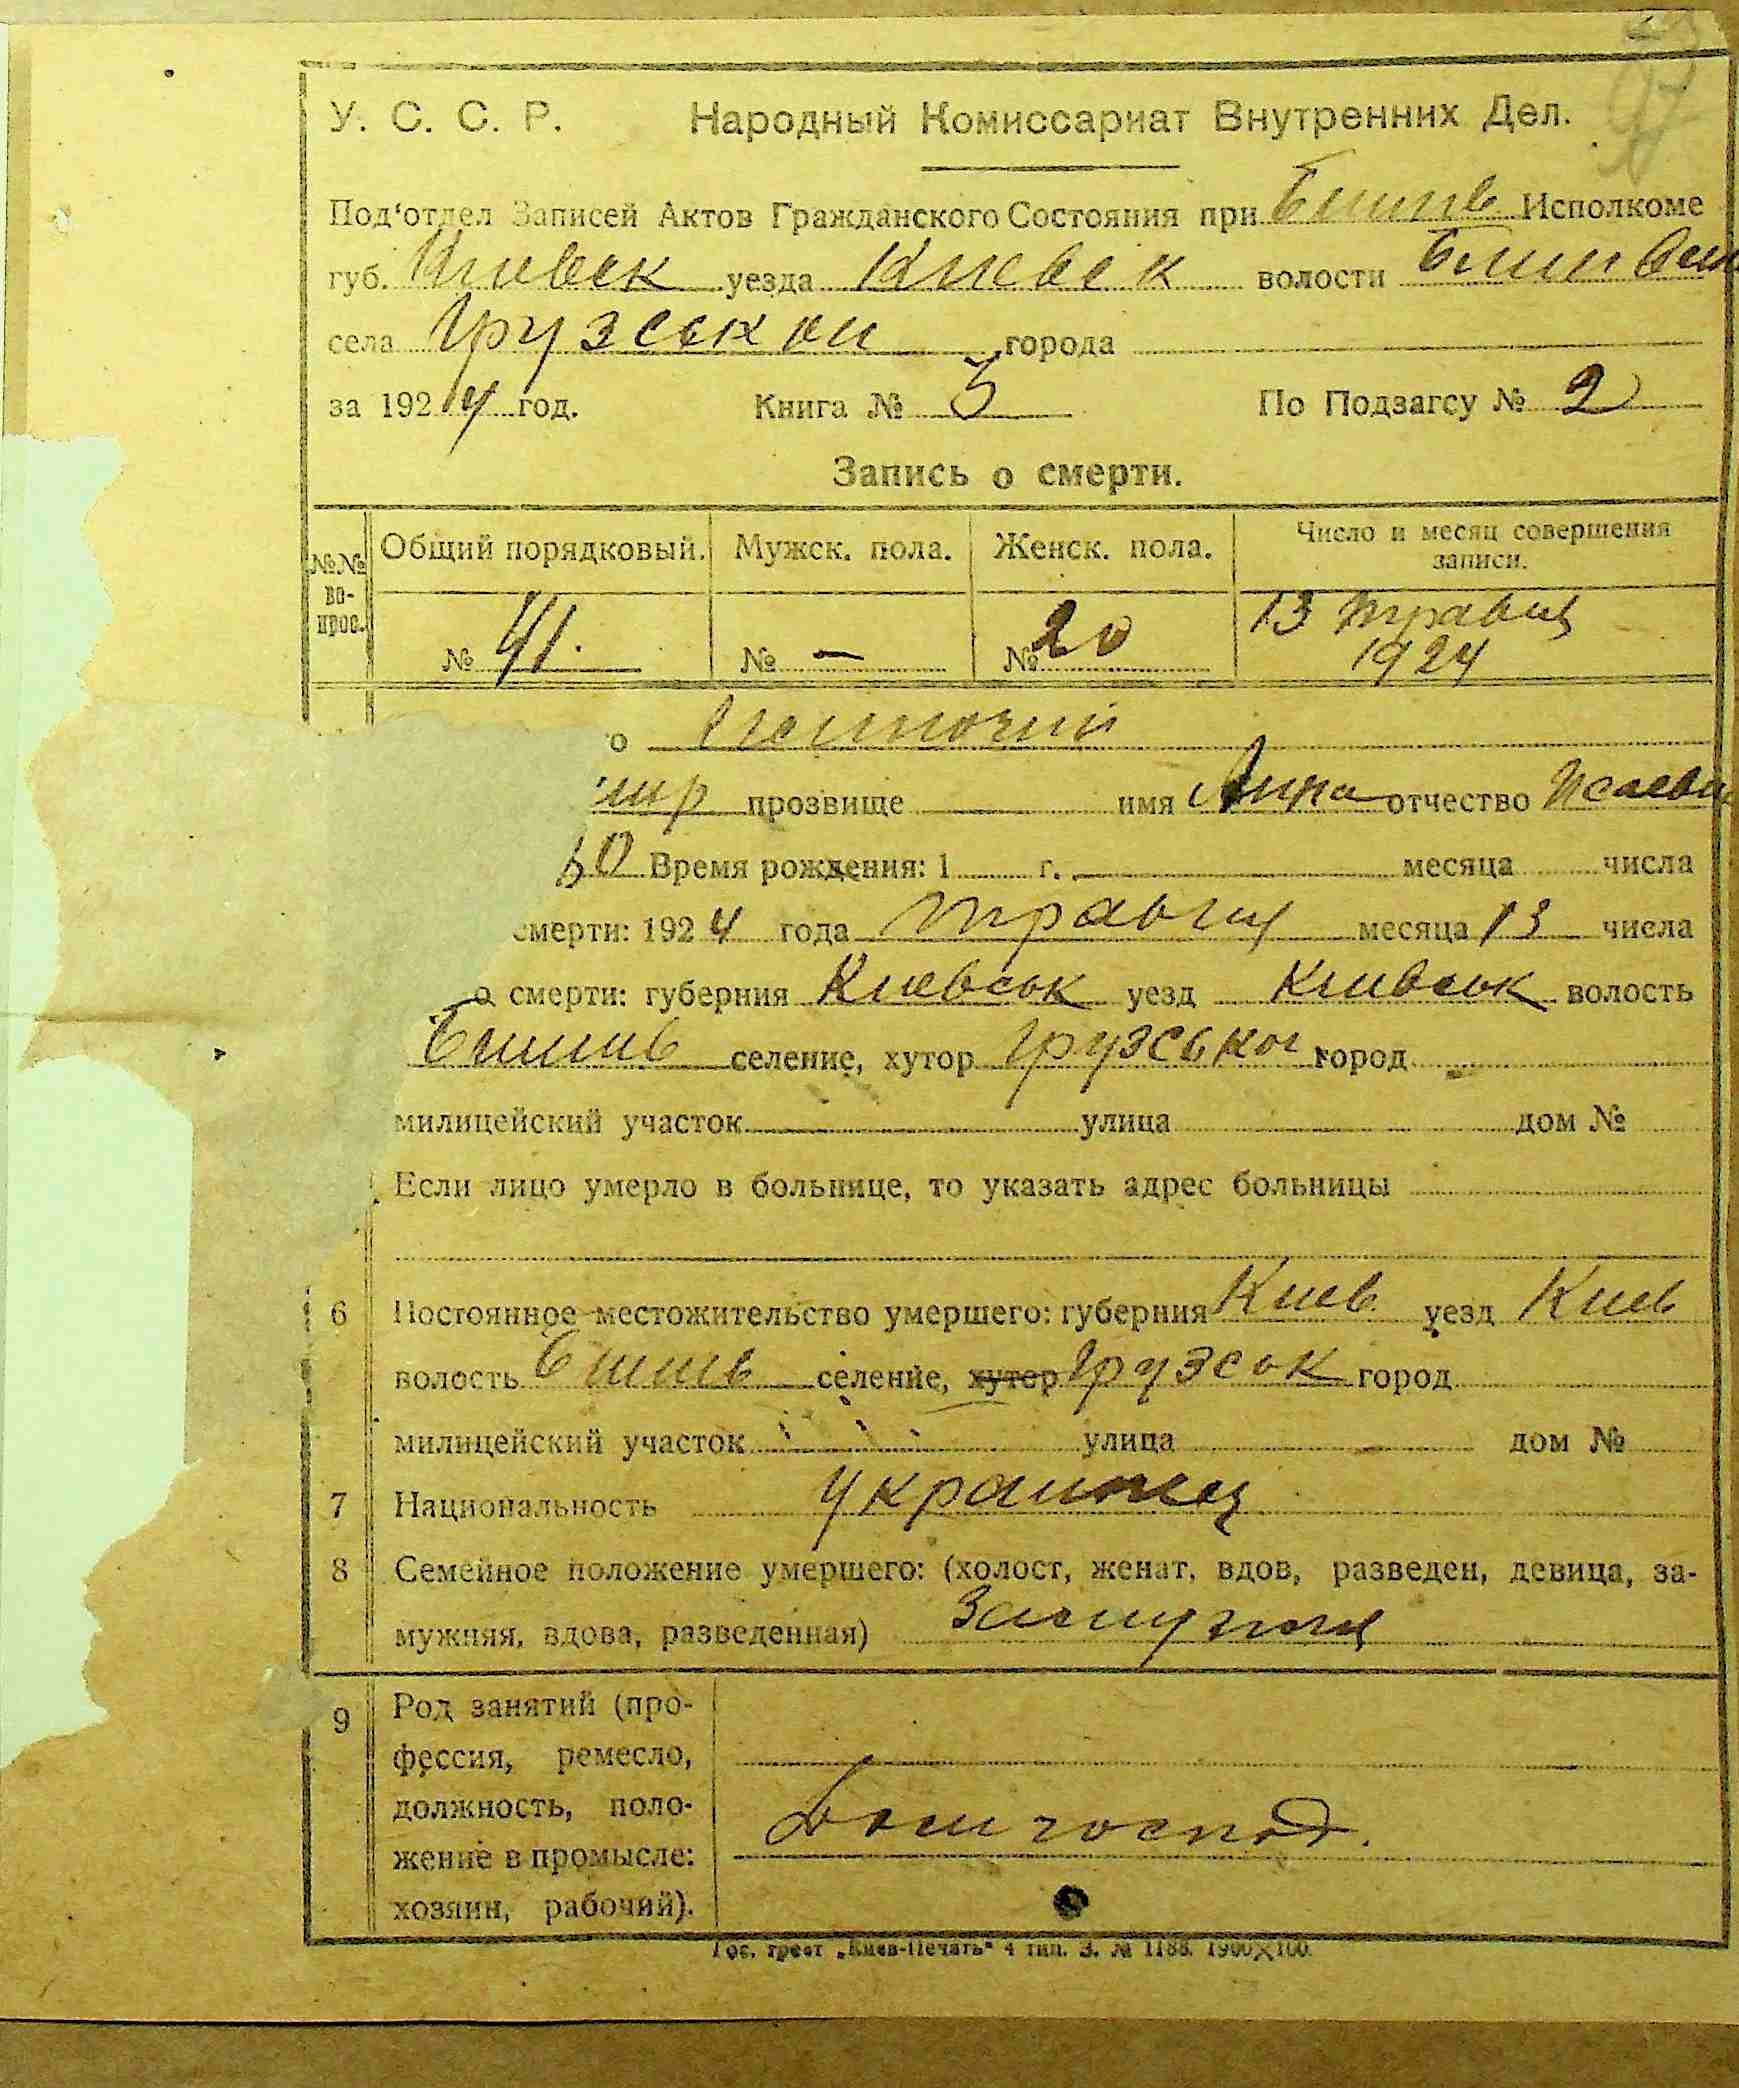 У. С. С. Р. Народный Комиссариат Внутренних Дел.
Под'отдел Записей Актов Гражданского Состояния при Бишив Исполкоме
губ. Киевск уезда Киевск волости
села Грузской города
за 1924 год. Книга № 5 По Подзагсу № 2
Запись о смерти.
№№ во- прос. Общий порядковый. Мужск. пола. Женск. пола. Число и месяц совершения записи.
№ 41. № — № 20 13 травня 1924
о
прозвище имя Анна отчество
60 Время рождения: 1 г. месяца числа
смерти: 1924 года травня месяца 13 числа
о смерти: губерния Киевськ уезд Киивськ волость
Бишив селение, хутор Грузської город
милицейский участок улица дом №
Если лицо умерло в больнице, то указать адрес больницы
6 Постоянное местожительство умершего: губерния Киев уезд Киев
волость Бишив селение, хутор Грузськ город
милицейский участок улица дом №
7 Национальность Украинец
8 Семейное положение умершего: (холост, женат, вдов, разведен, девица, за-
мужняя, вдова, разведенная) Замужня
9 Род занятий (про-
фессия, ремесло,
должность, поло-
жение в промысле:
хозяин, рабочий).
Дом господ.
Гос. трест „Киев-Печать" 4 тип. З. № 1188. 1900×100.